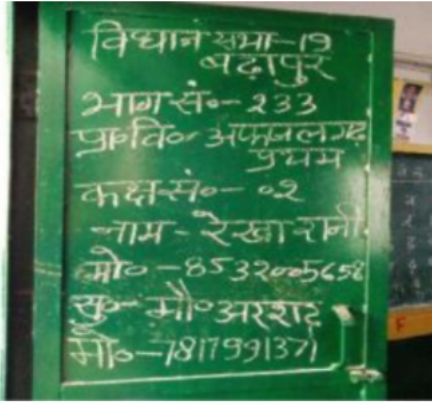 विधान सभा-19
बढ़ापुर
भाग सं०- 233
प्रा०वि०- अफजलगढ़
प्रथम
कक्ष सं०- ०२
नाम - रेखा रानी
मो० - 8532005658
सु०- मौ० अरशद
मो०-7817991371